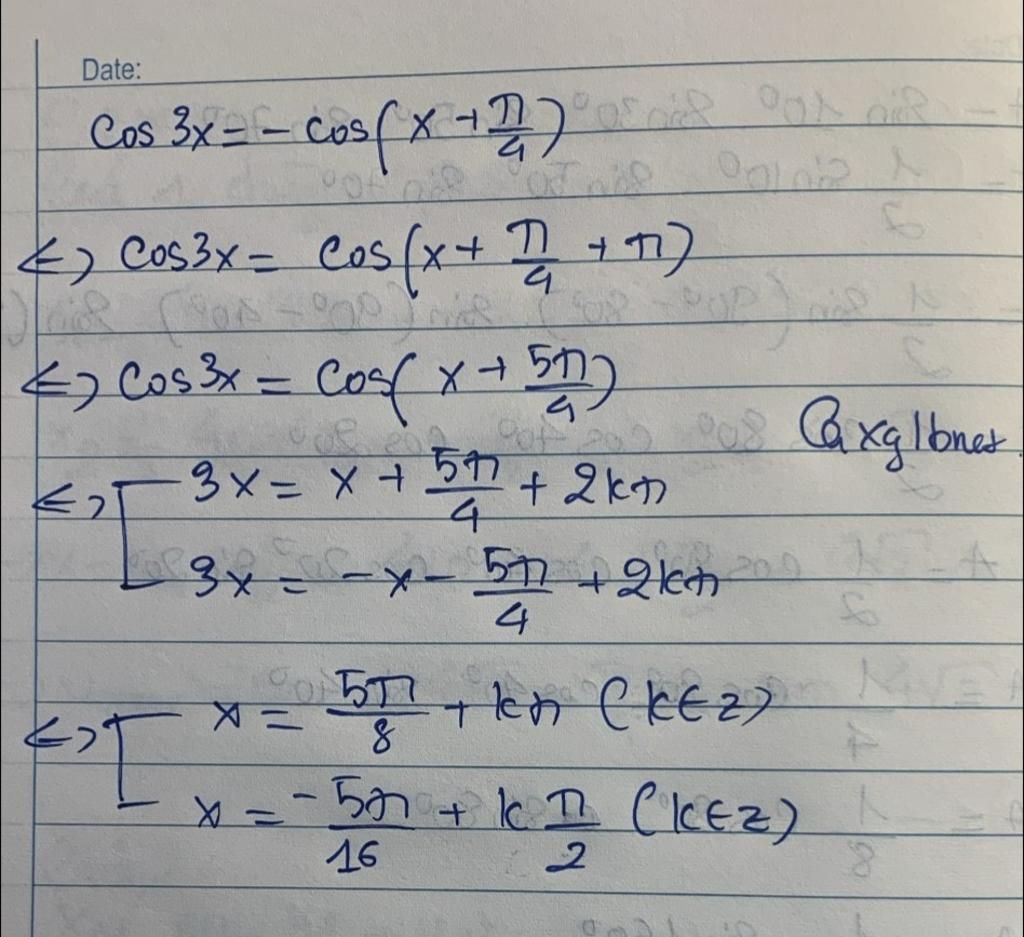 Date:
cos 3x = - cos(x + π/4)
<=> cos3x = cos(x + π/4 + π)
<=> cos3x = cos(x + 5π/4)
@axg1bnet
<=> [ 3x = x + 5π/4 + 2kπ
3x = -x - 5π/4 + 2kπ
<=> [ x = 5π/8 + kπ (k∈z)
x = -5π/16 + k π/2 (k∈z)